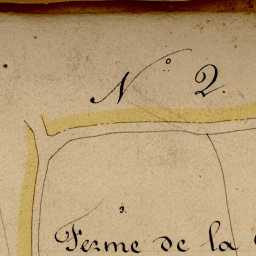 N° 2.
3.
Ferme de la